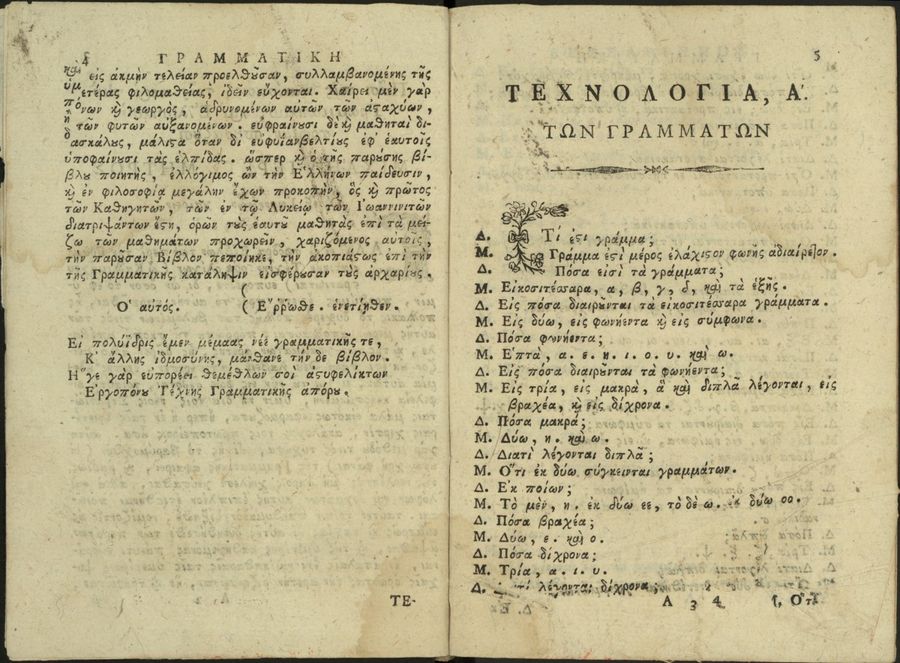 ΓΡΑΜΜΑΤΙΚΗ
εἰς ἀκμὴν τελείαν προελθȣ͂σαν, συλλαμβανομένης τῆς
ὑμετέρας φιλομαθείας, ἰδεῖν εὔχονται. Χαίρει μὲν γὰρ
πόνων ϗ γεωργὸς, ἁδρυνομένων αὐτῶν τῶν ἀϛαχύων,
ἢ τῶν φυτῶν αὐξανομένων. εὐφραίνȣσι δὲ ϗ μαθηταὶ δι-
δασκάλȣς, μάλιϛα ὅταν δι᾽ εὐφυΐαν βελτίȣς ἐφ᾽ ἑαυτοῖς
ὑποφαίνȣσι τὰς ἐλπίδας. ὥσπερ ϗ ὁ τῆς παρȣ́σης βί-
βλȣ ποιητὴς, ἐλλόγιμος ὢν τὴν Ἑλλήνων παίδευσιν,
ϗ ἐν φιλοσοφίᾳ μεγάλην ἔχων προκοπὴν, ὃς ϗ πρῶτος
τῶν Καθηγητῶν, τῶν ἐν τῷ Λυκείῳ τῶν Ἰωαννινιτῶν
διατριψάντων ἔτη, ὁρῶν τȣ̀ς ἑαυτȣ͂ μαθητὰς ἐπὶ τὰ μεί-
ζω τῶν μαθημάτων προχωρεῖν, χαριζόμενος αὐτοῖς,
τὴν παρȣ͂σαν Βίβλον πεποίηκε, τὴν ἀκοπιάϛως ἐπὶ τὴν
τῆς Γραμματικῆς κατάληψιν εἰσφέρȣσαν τȣ̀ς ἀρχαρίȣς.
Ὁ αὐτός. ( Ἔῤῥωσθε. ἐνετίηθεν.
Εἰ πολύϊδρις ἔμεν μέμαας νέε γραμματικῆς τε,
Κ᾽ ἄλλης ἰδμοσύνης, μάνθανε τήνδε βίβλον.
Ἥγε γὰρ εὐπορέει θεμέθλων σοὶ ἀϛυφελίκτων
Ἐργοπόνȣ Τέχνης Γραμματικῆς ἀπόρȣ.
ΤΕ-
5
ΤΕΧΝΟΛΟΓΙΑ, Α΄.
ΤΩΝ ΓΡΑΜΜΑΤΩΝ
Δ. Τί ἐϛι γράμμα;
Μ. Γράμμα ἐϛὶ μέρος ἐλάχιϛον φωνῆς ἀδιαίρετον.
Δ. Πόσα εἰσὶ τὰ γράμματα;
Μ. Εἰκοσιτέσσαρα, α, β, γ, δ, καὶ τὰ ἑξῆς.
Δ. Εἰς πόσα διαιρȣ͂νται τὰ εἰκοσιτέσσαρα γράμματα.
Μ. Εἰς δύω, εἰς φωνήεντα ϗ εἰς σύμφωνα.
Δ. Πόσα φωνήεντα;
Μ. Ἑπτὰ, α. ε. η. ι. ο. υ. καὶ ω.
Δ. Εἰς πόσα διαιρȣ͂νται τὰ φωνήεντα;
Μ. Εἰς τρία, εἰς μακρὰ, ἃ καὶ διπλᾶ λέγονται, εἰς
βραχέα, ϗ εἰς δίχρονα.
Δ. Πόσα μακρά;
Μ. Δύω, η. καὶ ω.
Δ. Διατὶ λέγονται διπλᾶ;
Μ. Ὅτι ἐκ δύω σύγκεινται γραμμάτων.
Δ. Ἐκ ποίων;
Μ. Τὸ μὲν, η. ἐκ δύω εε, τὸ δὲ ω. ἐκ δύω οο.
Δ. Πόσα βραχέα;
Μ. Δύω, ε. καὶ ο.
Δ. Πόσα δίχρονα;
Μ. Τρία, α. ι. υ.
Δ. λέγονται δίχρονα;
Α 3 4 Ὅτι